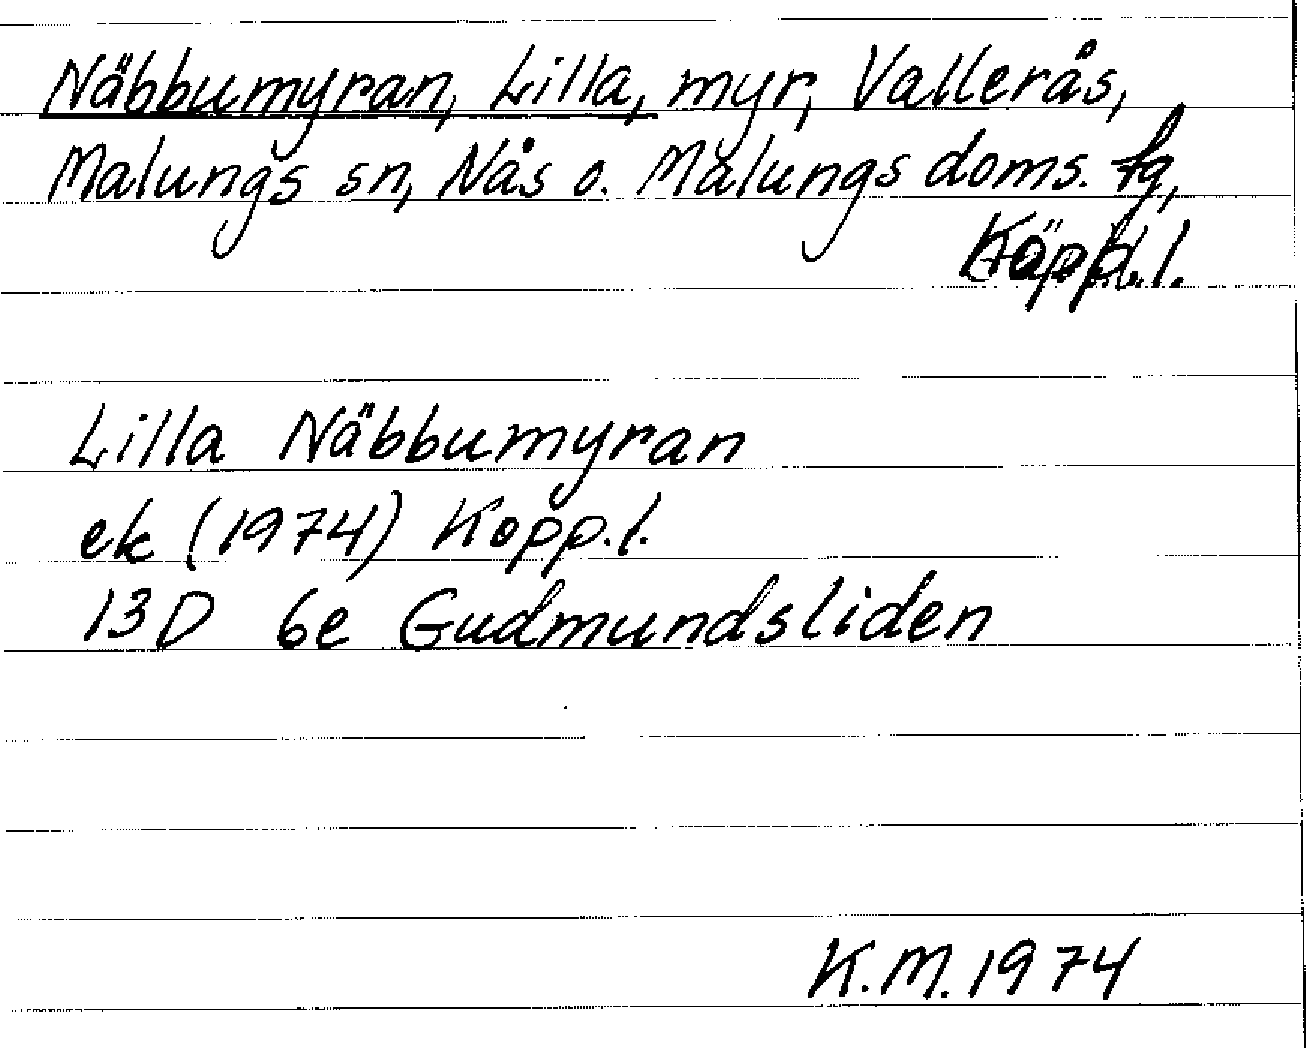 Näbbumyran, Lilla, myr, Vallerås,
Malungs sn, Nås o. Malungs doms. fg,
Kopp.l.
Lilla Näbbumyran
ek (1974) Kopp.l.
13D 6e Gudmundsliden
K.M. 1974